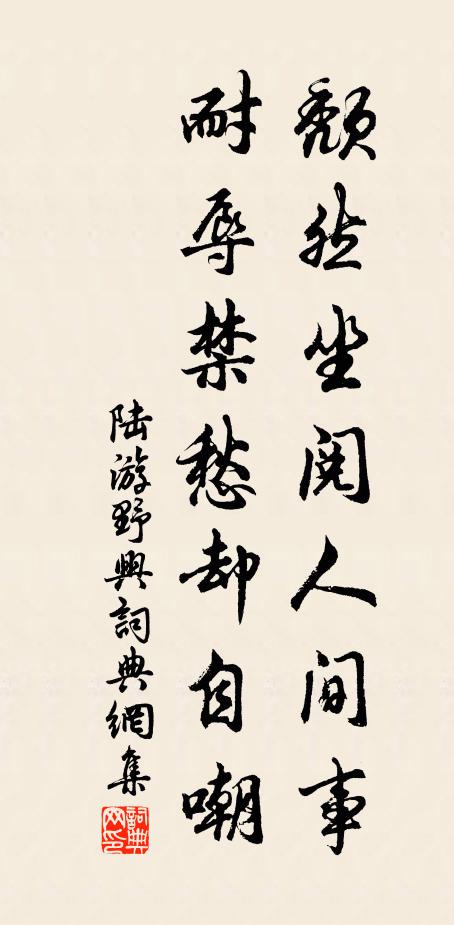 頹然坐閱人間事
耐辱禁愁却自嘲
陆游野興詞典網集
詞典網印